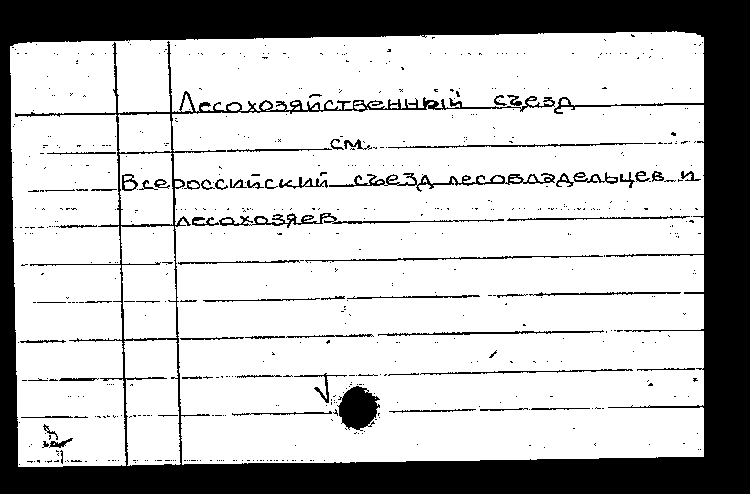 Лесохозяйственный съезд
см.
Всероссийский съезд лесовладельцев и
лесохозяев